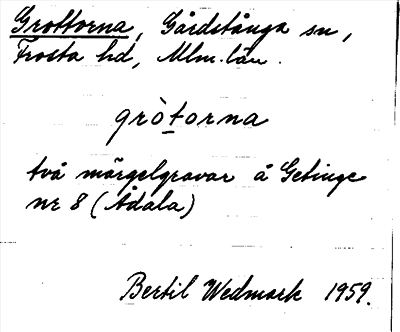 Grottorna, Gårdstånga sn,
Frosta hd, Mlm. län.
gròtorna
två märgelgravar å Getinge
nr 8 (Ådala)
Bertil Wedmark 1959.